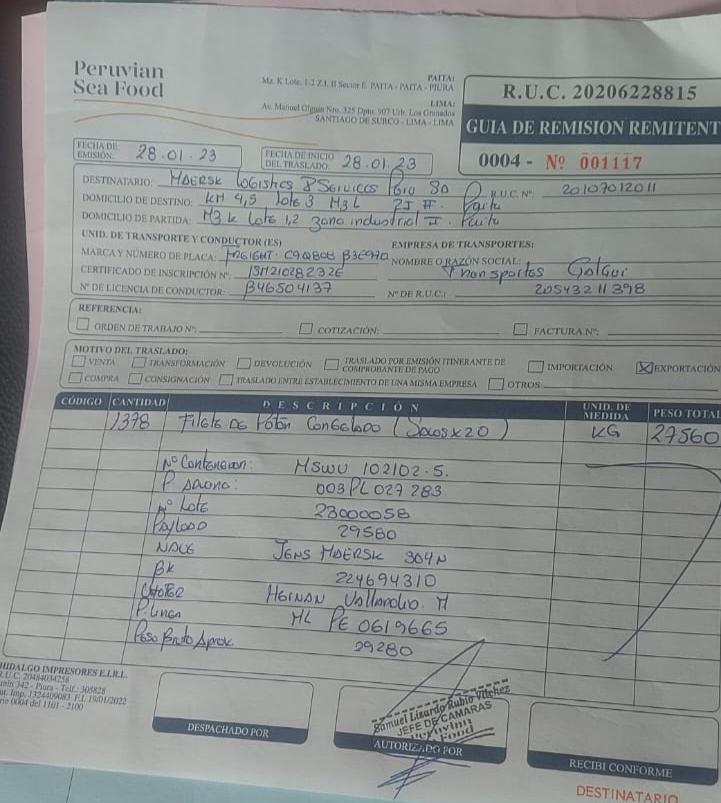 Peruvian
Sea Food
PAITA:
Mz. K Lote. 1-2 Z.I. II Sector E. PAITA - PAITA - PIURA
LIMA:
Av. Manuel Olguin Nro. 325 Dpto. 907 Urb. Los Granados
SANTIAGO DE SURCO - LIMA - LIMA
R.U.C. 20206228815
GUIA DE REMISION REMITENT
0004 - Nº 001117
FECHA DE EMISIÓN: 28.01.23
FECHA DE INICIO DEL TRASLADO: 28.01.23
DESTINATARIO: MAERSK Logistics & Servicios Perú SA R.U.C. Nº: 20107012011
DOMICILIO DE DESTINO: KM 4,5 lote 3 M3 L ZI II. Paita
DOMICILIO DE PARTIDA: M3 K lote 1,2 zona industrial II. Paita
UNID. DE TRANSPORTE Y CONDUCTOR (ES)
EMPRESA DE TRANSPORTES:
MARCA Y NÚMERO DE PLACA:
NOMBRE O RAZÓN SOCIAL: Transportes
CERTIFICADO DE INSCRIPCIÓN Nº: 15M21028232E
Nº DE LICENCIA DE CONDUCTOR: B46504137
Nº DE R.U.C.: 20543211398
REFERENCIA:
ORDEN DE TRABAJO Nº: COTIZACIÓN: FACTURA Nº:
MOTIVO DEL TRASLADO:
VENTA TRANSFORMACIÓN DEVOLUCIÓN TRASLADO POR EMISIÓN ITINERANTE DE COMPROBANTE DE PAGO IMPORTACIÓN EXPORTACIÓN
COMPRA CONSIGNACIÓN TRASLADO ENTRE ESTABLECIMIENTO DE UNA MISMA EMPRESA OTROS
CÓDIGO CANTIDAD DESCRIPCIÓN UNID. DE MEDIDA PESO TOTAL
1378 Filete de Potón Congelado (Sacos x 20) KG 27560
Nº Contenedor: MSWU 102102-5.
P. Aduana: 003PL027283
Nº Lote 23000058
Payload 29580
NAVE JENS MAERSK 304N
BK 224694310
Chofer Hernan Valladolid. M
P. Linea ML PE 0619665
Peso Bruto Aprox. 29280
HIDALGO IMPRESORES E.I.R.L.
R.U.C. 20484034258
342 - Piura - Telf.: 305828
Imp. 1324409083 F.I. 19/01/2022
0004 del 1101 - 2100
DESPACHADO POR
Samuel Lisardo Rubio Vilchez
JEFE DE CAMARAS
Peruvian
Sea Food
AUTORIZADO POR
RECIBI CONFORME
DESTINATARIO